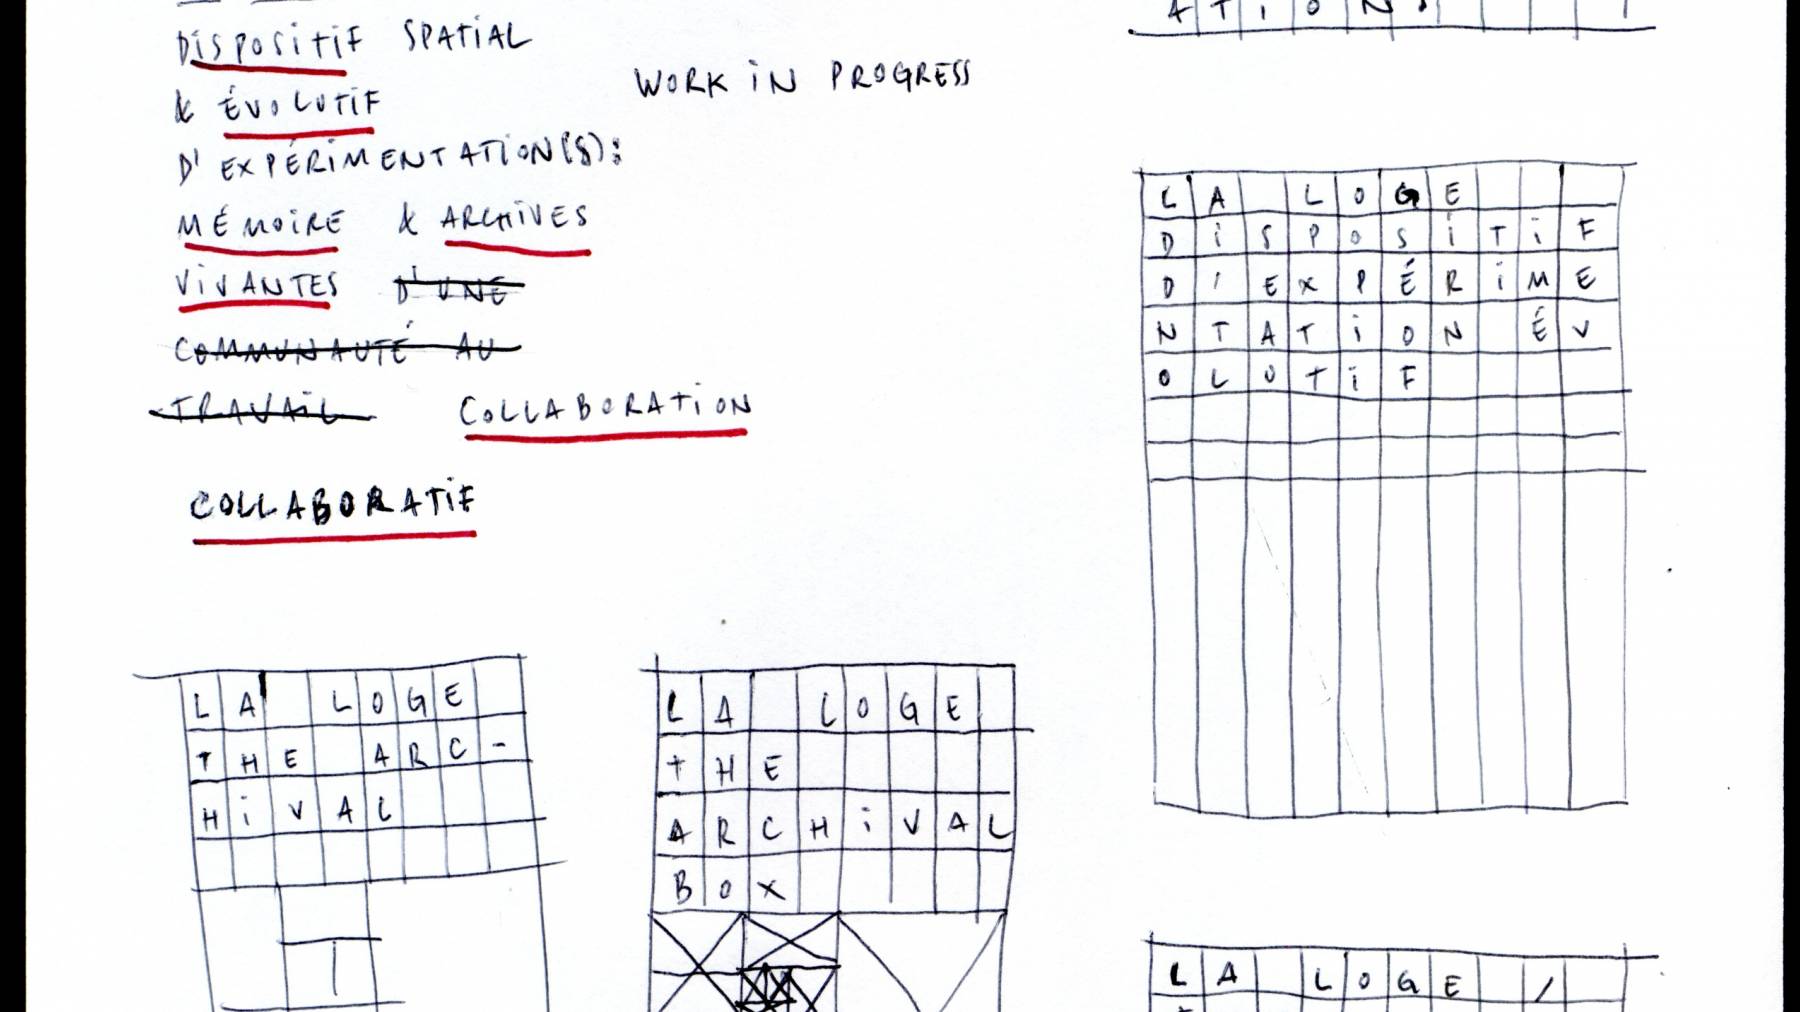 DISPOSITIF SPATIAL
& ÉVOLUTIF
D'EXPÉRIMENTATION(S):
MÉMOIRE & ARCHIVES
VIVANTES D'UNE
COMMUNAUTÉ AU
TRAVAIL COLLABORATION
COLLABORATIF
WORK IN PROGRESS
ATIONS
LA LOGE
DISPOSITIF
D'EXPÉRIME
NTATION ÉV
OLUTIF
LA LOGE
THE ARC-
HIVAL
LA LOGE
THE
ARCHIVAL
BOX
LA LOGE /